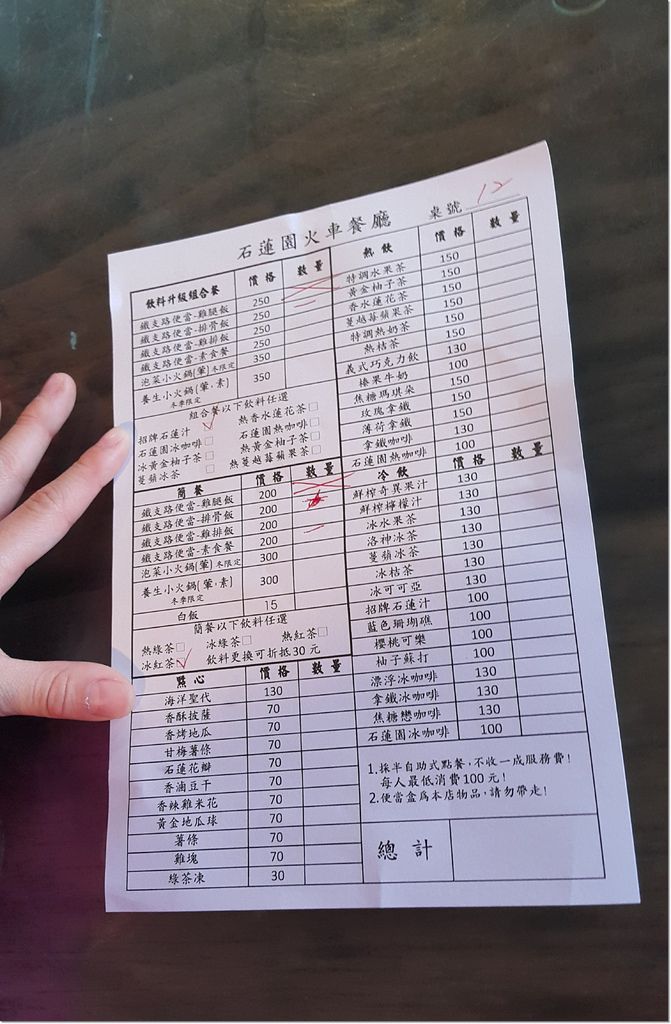 石蓮園火車餐廳 桌號 12
飲料升級組合餐 價格 數量
鐵支路便當-雞腿飯 250
鐵支路便當-排骨飯 250
鐵支路便當-雞排飯 250
鐵支路便當-素食餐 250
泡菜小火鍋(葷)冬限定 350
養生小火鍋(葷.素) 350
冬季限定
組合餐以下飲料任選
招牌石蓮汁 ✓ 熱香水蓮花茶□
石蓮園冰咖啡□ 石蓮園熱咖啡□
冰黃金柚子茶□ 熱黃金柚子茶□
蔓蘋冰茶□ 熱蔓越莓蘋果茶□
簡餐 價格 數量
鐵支路便當-雞腿飯 200
鐵支路便當-排骨飯 200
鐵支路便當-雞排飯 200
鐵支路便當-素食餐 200
泡菜小火鍋(葷)冬限定 300
養生小火鍋(葷.素) 300
冬季限定
白飯 15
簡餐以下飲料任選
熱綠茶□ 冰綠茶□ 熱紅茶□
冰紅茶☑ 飲料更換可折抵30元
點心 價格 數量
海洋聖代 130
香酥披薩 70
香烤地瓜 70
甘梅薯條 70
石蓮花瓣 70
香滷豆干 70
香辣雞米花 70
黃金地瓜球 70
薯條 70
雞塊 70
綠茶凍 30
熱飲 價格 數量
特調水果茶 150
黃金柚子茶 150
香水蓮花茶 150
蔓越莓蘋果茶 150
特調熱奶茶 150
熱桔茶 130
義式巧克力飲 100
榛果牛奶 150
焦糖瑪琪朵 150
玫瑰拿鐵 150
薄荷拿鐵 130
拿鐵咖啡 100
石蓮園熱咖啡
冷飲 價格 數量
鮮榨奇異果汁 130
鮮榨檸檬汁 130
冰水果茶 130
洛神冰茶 130
蔓蘋冰茶 130
冰桔茶 130
冰可可亞 130
招牌石蓮汁 100
藍色珊瑚礁 100
櫻桃可樂 100
柚子蘇打 100
漂浮冰咖啡 130
拿鐵冰咖啡 130
焦糖戀咖啡 130
石蓮園冰咖啡 100
1.採半自助式點餐,不收一成服務費!
每人最低消費100元!
2.便當盒為本店物品,請勿帶走!
總計